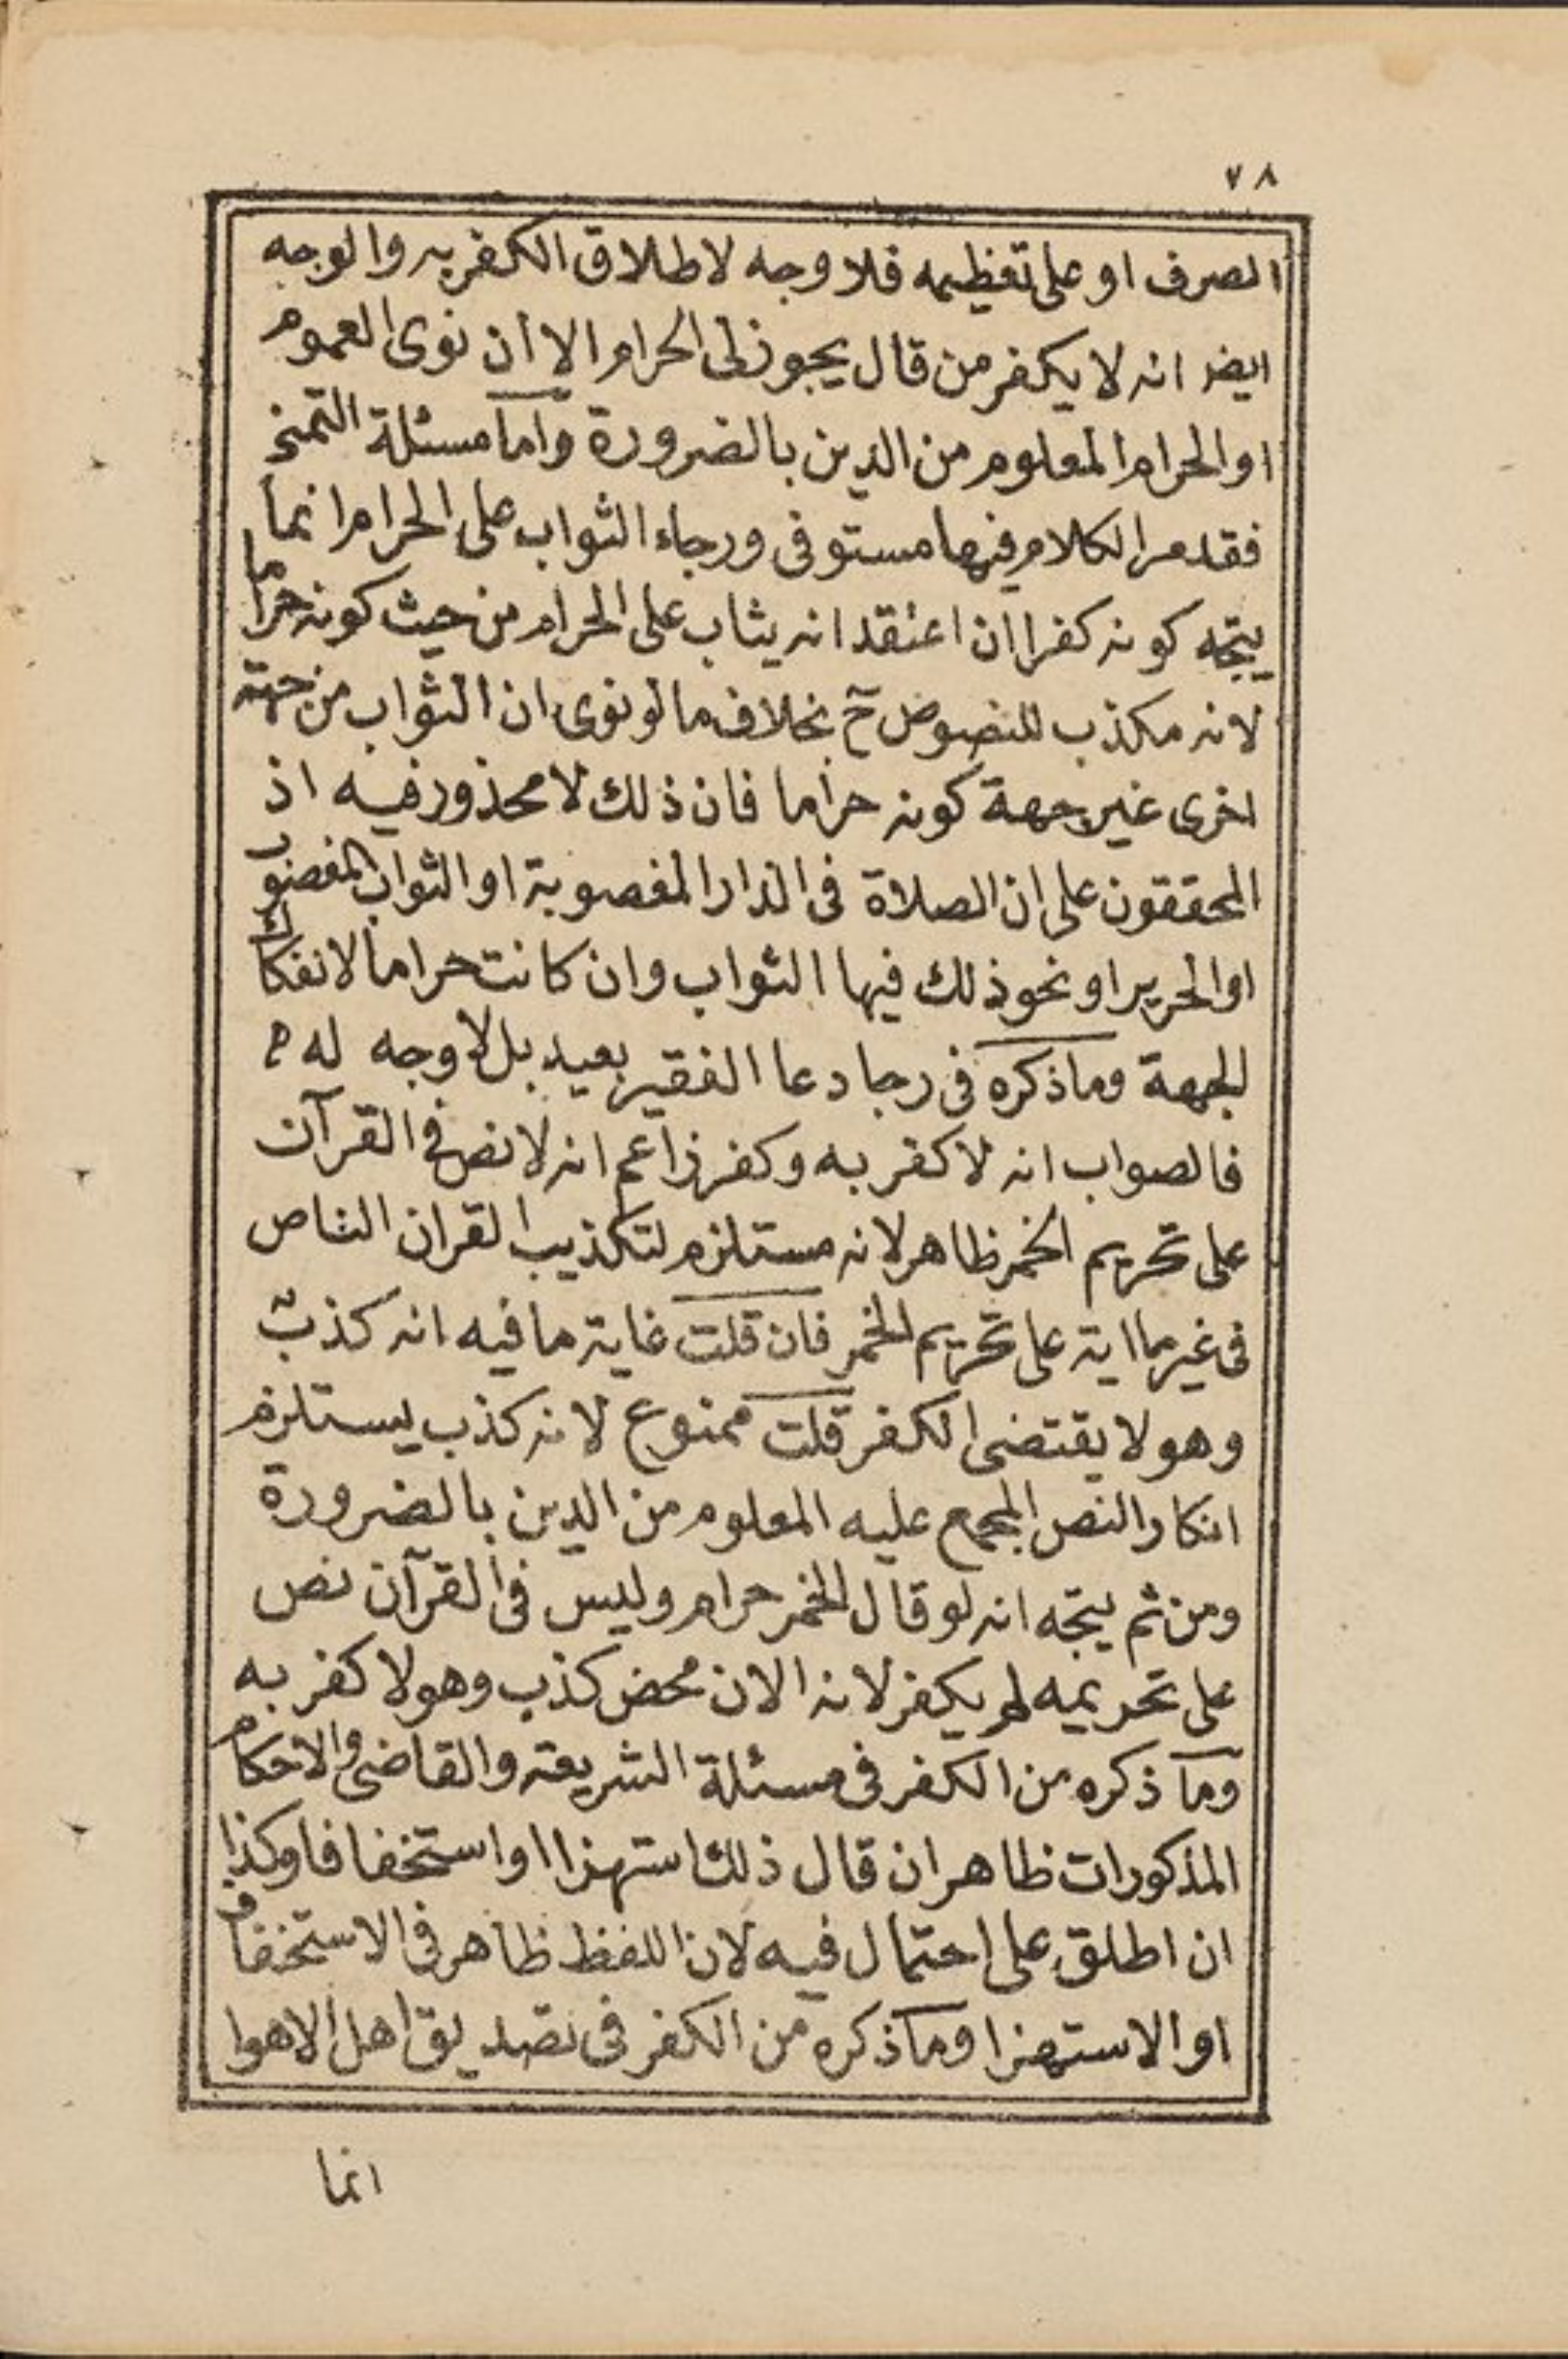 ٧٨
الصرف او على تعظيمه فلا وجه لاطلاق الكفر به والوجه
ايضا انه لا يكفر من قال يجوز لى الحرام الا أن نوى العموم
او الحرام المعلوم من الدين بالضرورة واما مسئلة التمنى
فقد مر الكلام فيها مستوفى ورجاء الثواب على الحرام انما
يتجه كونه كفرا ان اعتقد انه يثاب على الحرام من حيث كونه حراما
لانه مكذب للنصوص ح بخلاف ما لو نوى ان الثواب من جهته
اخرى غير جهة كونه حراما فان ذلك لا محذور فيه اذ
المحققون على ان الصلاة فى الدار المغصوبة او الثواب المغصوب
او الحرير او نحو ذلك فيها الثواب وان كانت حراما لانفكاك
الجهة وما ذكره فى رجا دعا الفقير بعيد بل لا وجه له
فالصواب انه لا كفر به وكفر زاعم انه لا نص فى القرآن
على تحريم الخمر ظاهر لانه مستلزم لتكذيب القران الناص
فى غير ما اية على تحريم الخمر فان قلت غاية ما فيه انه كذب
وهو لا يقتضى الكفر قلت ممنوع لانه كذب يستلزم
انكار النص المجمع عليه المعلوم من الدين بالضرورة
ومن ثم يتجه انه لو قال الخمر حرام وليس فى القرآن نص
على تحريمه لم يكفر لانه الان محض كذب وهو لا كفر به
وما ذكره من الكفر فى مسئلة الشريعة والقاضى والاحكام
المذكورات ظاهر ان قال ذلك استهزا او استخفافا وكذا
ان اطلق على احتمال فيه لان اللفظ ظاهر فى الاستخفاف
او الاستهزا وما ذكره من الكفر فى تصديق اهل الاهوا
انما